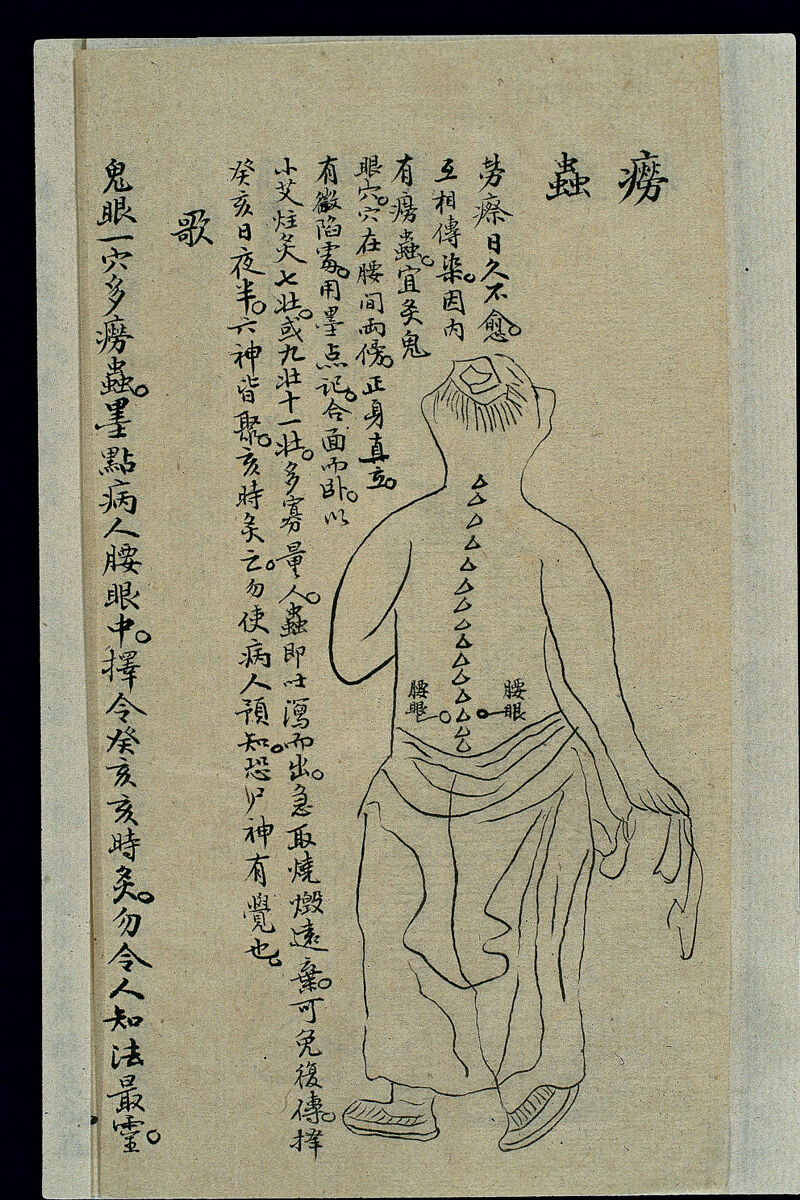 癆
蟲
勞瘵日久不愈。
互相傳染。因內
有癆蟲。宜灸鬼
眼穴。穴在腰間兩傍。正身直立。
有微陷處。用墨点記。合面而卧。以
小艾炷灸七壯。或九壯十一壯。多寡量人。蟲即吐瀉而出。急取燒燬遠棄。可免復傳。擇
癸亥日夜半。六神皆聚。亥時灸之。勿使病人預知。恐尸神有覺也。
歌
鬼眼一穴多癆蟲。墨點病人腰眼中。擇令癸亥亥時灸。勿令人知法最靈。
腰眼
腰眼